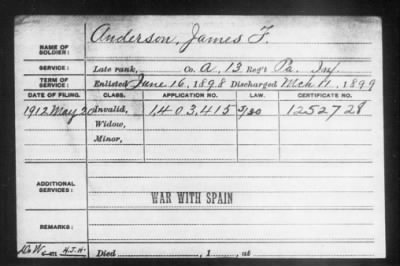 Anderson, James F.
NAME OF SOLDIER:
SERVICE: Late rank, Co. A, 13 Reg't Pa. Inf.
TERM OF SERVICE: Enlisted June 16, 1898 Discharged Mch 11, 1899
DATE OF FILING. CLASS. APPLICATION NO. LAW. CERTIFICATE NO.
1912 May Invalid, 1403,415 1252728
Widow,
Minor,
ADDITIONAL SERVICES:
WAR WITH SPAIN
REMARKS:
Died , 1 , at